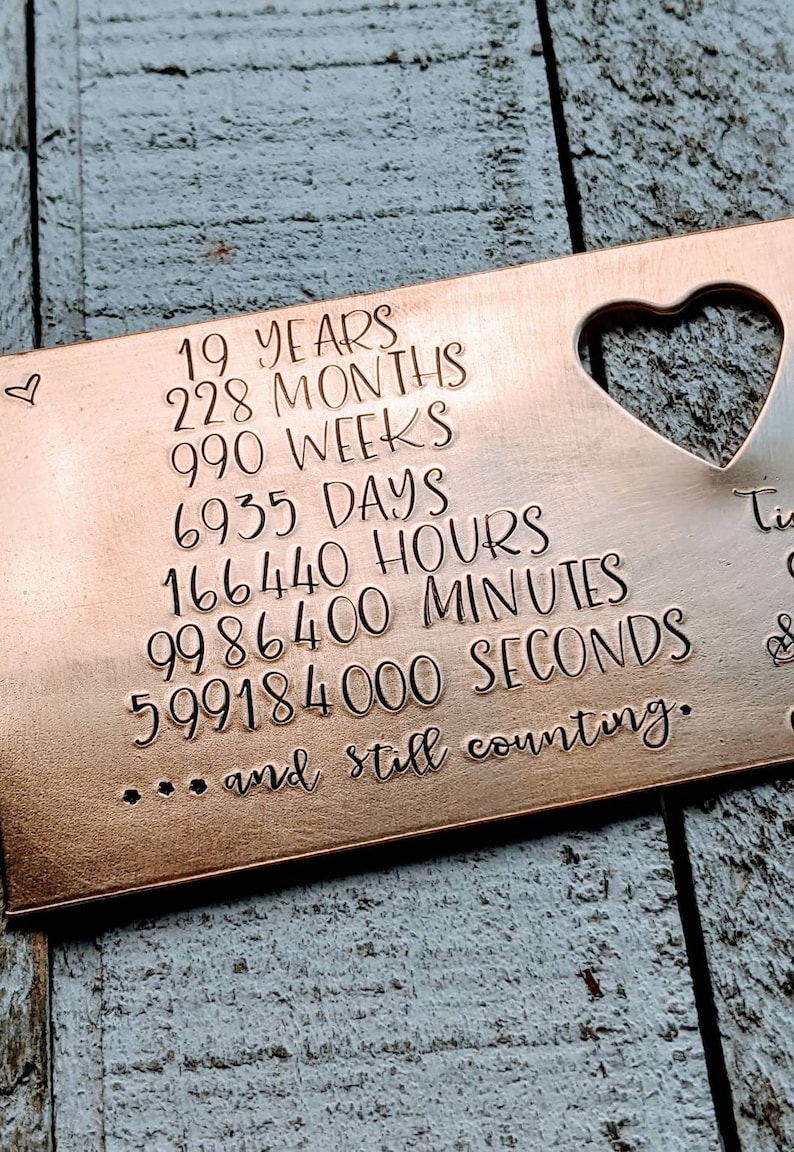 19 YEARS
228 MONTHS
990 WEEKS
6935 DAYS
166440 HOURS
9986400 MINUTES
599184000 SECONDS
...and still counting.